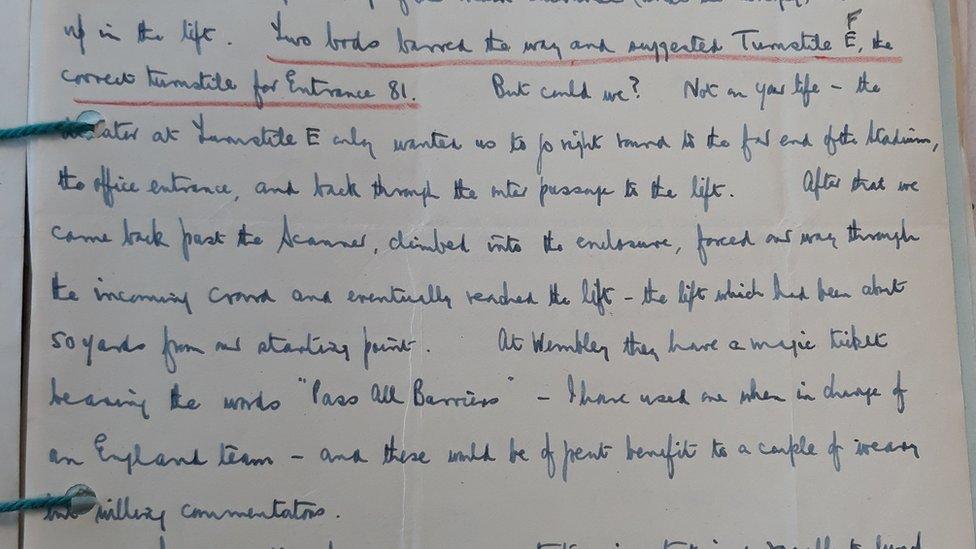 up in the lift. Two bods barred the way and suggested Turnstile E F, the
correct turnstile for Entrance 81. But could we? Not on your life - the
at Turnstile E only wanted us to go right round to the far end of the Stadium,
the office entrance, and back through the outer passage to the lift. After that we
came back past the Scanner, climbed into the enclosure, forced our way through
the incoming crowd and eventually reached the lift - the lift which had been about
50 yards from our starting point. At Wembley they have a magic ticket
bearing the words "Pass All Barriers" - I have used one when in charge of
an England team - and these would be of great benefit to a couple of weary
but willing commentators.